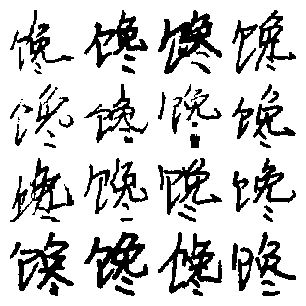 馋馋馋馋
馋馋馋馋
馋馋馋馋
馋馋馋馋